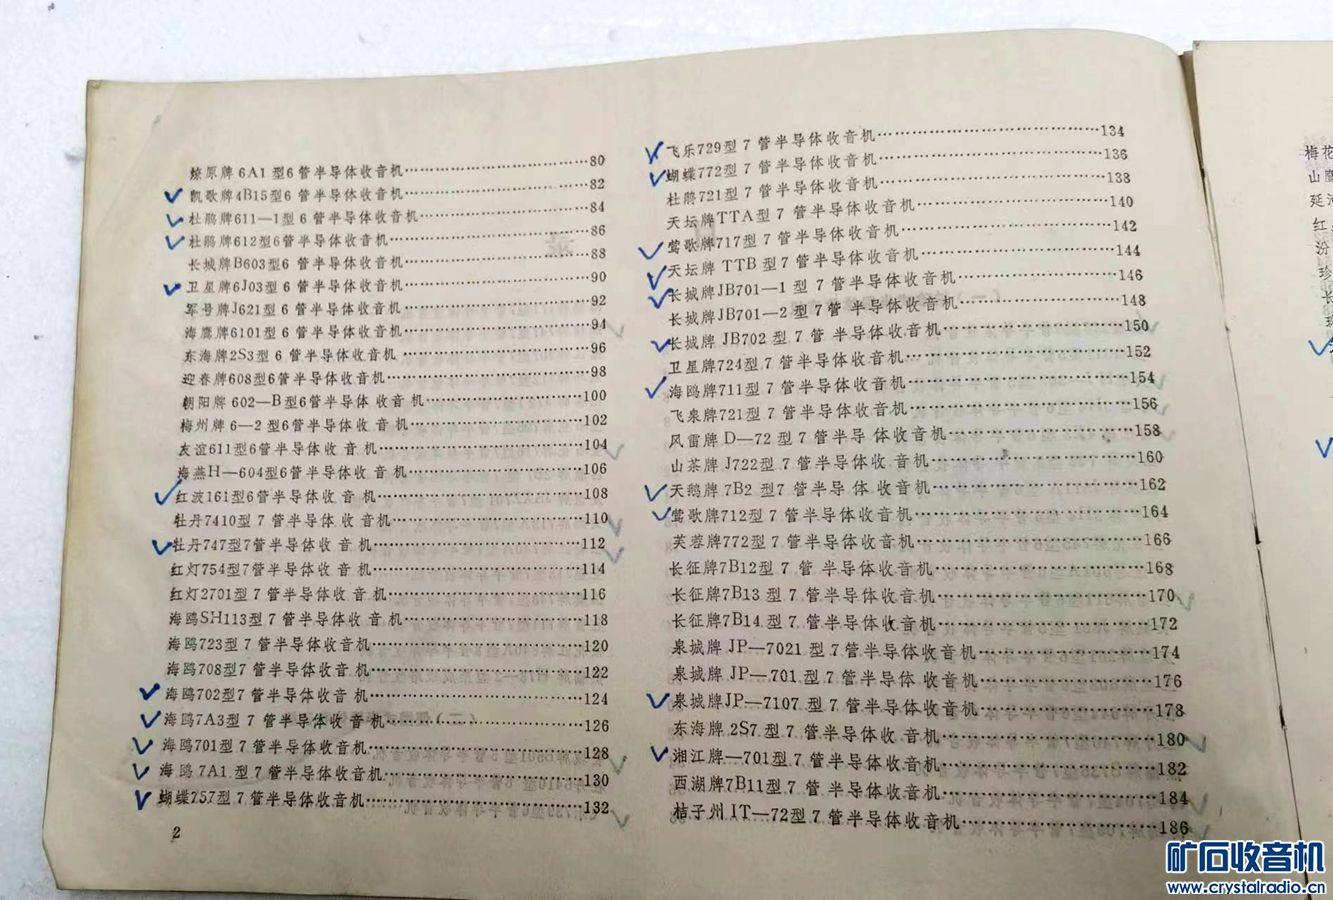 燎原牌6A1型6管半导体收音机……80
凯歌牌4B15型6管半导体收音机……82
杜鹃牌611—1型6管半导体收音机……84
杜鹃牌612型6管半导体收音机……86
长城牌B603型6管半导体收音机……88
卫星牌6J03型6管半导体收音机……90
军号牌J621型6管半导体收音机……92
海鹰牌6101型6管半导体收音机……94
东海牌2S3型6管半导体收音机……96
迎春牌608型6管半导体收音机……98
朝阳牌602—B型6管半导体收音机……100
梅州牌6—2型6管半导体收音机……102
友谊611型6管半导体收音机……104
海燕H—604型6管半导体收音机……106
红波161型6管半导体收音机……108
牡丹7410型7管半导体收音机……110
牡丹747型7管半导体收音机……112
红灯754型7管半导体收音机……114
红灯2701型7管半导体收音机……116
海鸥SH113型7管半导体收音机……118
海鸥723型7管半导体收音机……120
海鸥708型7管半导体收音机……122
海鸥702型7管半导体收音机……124
海鸥7A3型7管半导体收音机……126
海鸥701型7管半导体收音机……128
海鸥7A1型7管半导体收音机……130
蝴蝶757型7管半导体收音机……132
2
飞乐729型7管半导体收音机……134
蝴蝶772型7管半导体收音机……136
杜鹃721型7管半导体收音机……138
天坛牌TTA型7管半导体收音机……140
莺歌牌717型7管半导体收音机……142
天坛牌TTB型7管半导体收音机……144
长城牌JB701—1型7管半导体收音机……146
长城牌JB701—2型7管半导体收音机……148
长城牌JB702型7管半导体收音机……150
卫星牌724型7管半导体收音机……152
海鸥牌711型7管半导体收音机……154
飞泉牌721型7管半导体收音机……156
风雷牌D—72型7管半导体收音机……158
山茶牌J722型7管半导体收音机……160
天鹅牌7B2型7管半导体收音机……162
莺歌牌712型7管半导体收音机……164
芙蓉牌772型7管半导体收音机……166
长征牌7B12型7管半导体收音机……168
长征牌7B13型7管半导体收音机……170
长征牌7B14型7管半导体收音机……172
泉城牌JP—7021型7管半导体收音机……174
泉城牌JP—701型7管半导体收音机……176
泉城牌JP—7107型7管半导体收音机……178
东海牌2S7型7管半导体收音机……180
湘江牌—701型7管半导体收音机……182
西湖牌7B11型7管半导体收音机……184
桔子州IT—72型7管半导体收音机……186
梅花
山鹰
延河
红
汾
珍
长
矿石收音机
www.crystalradio.cn